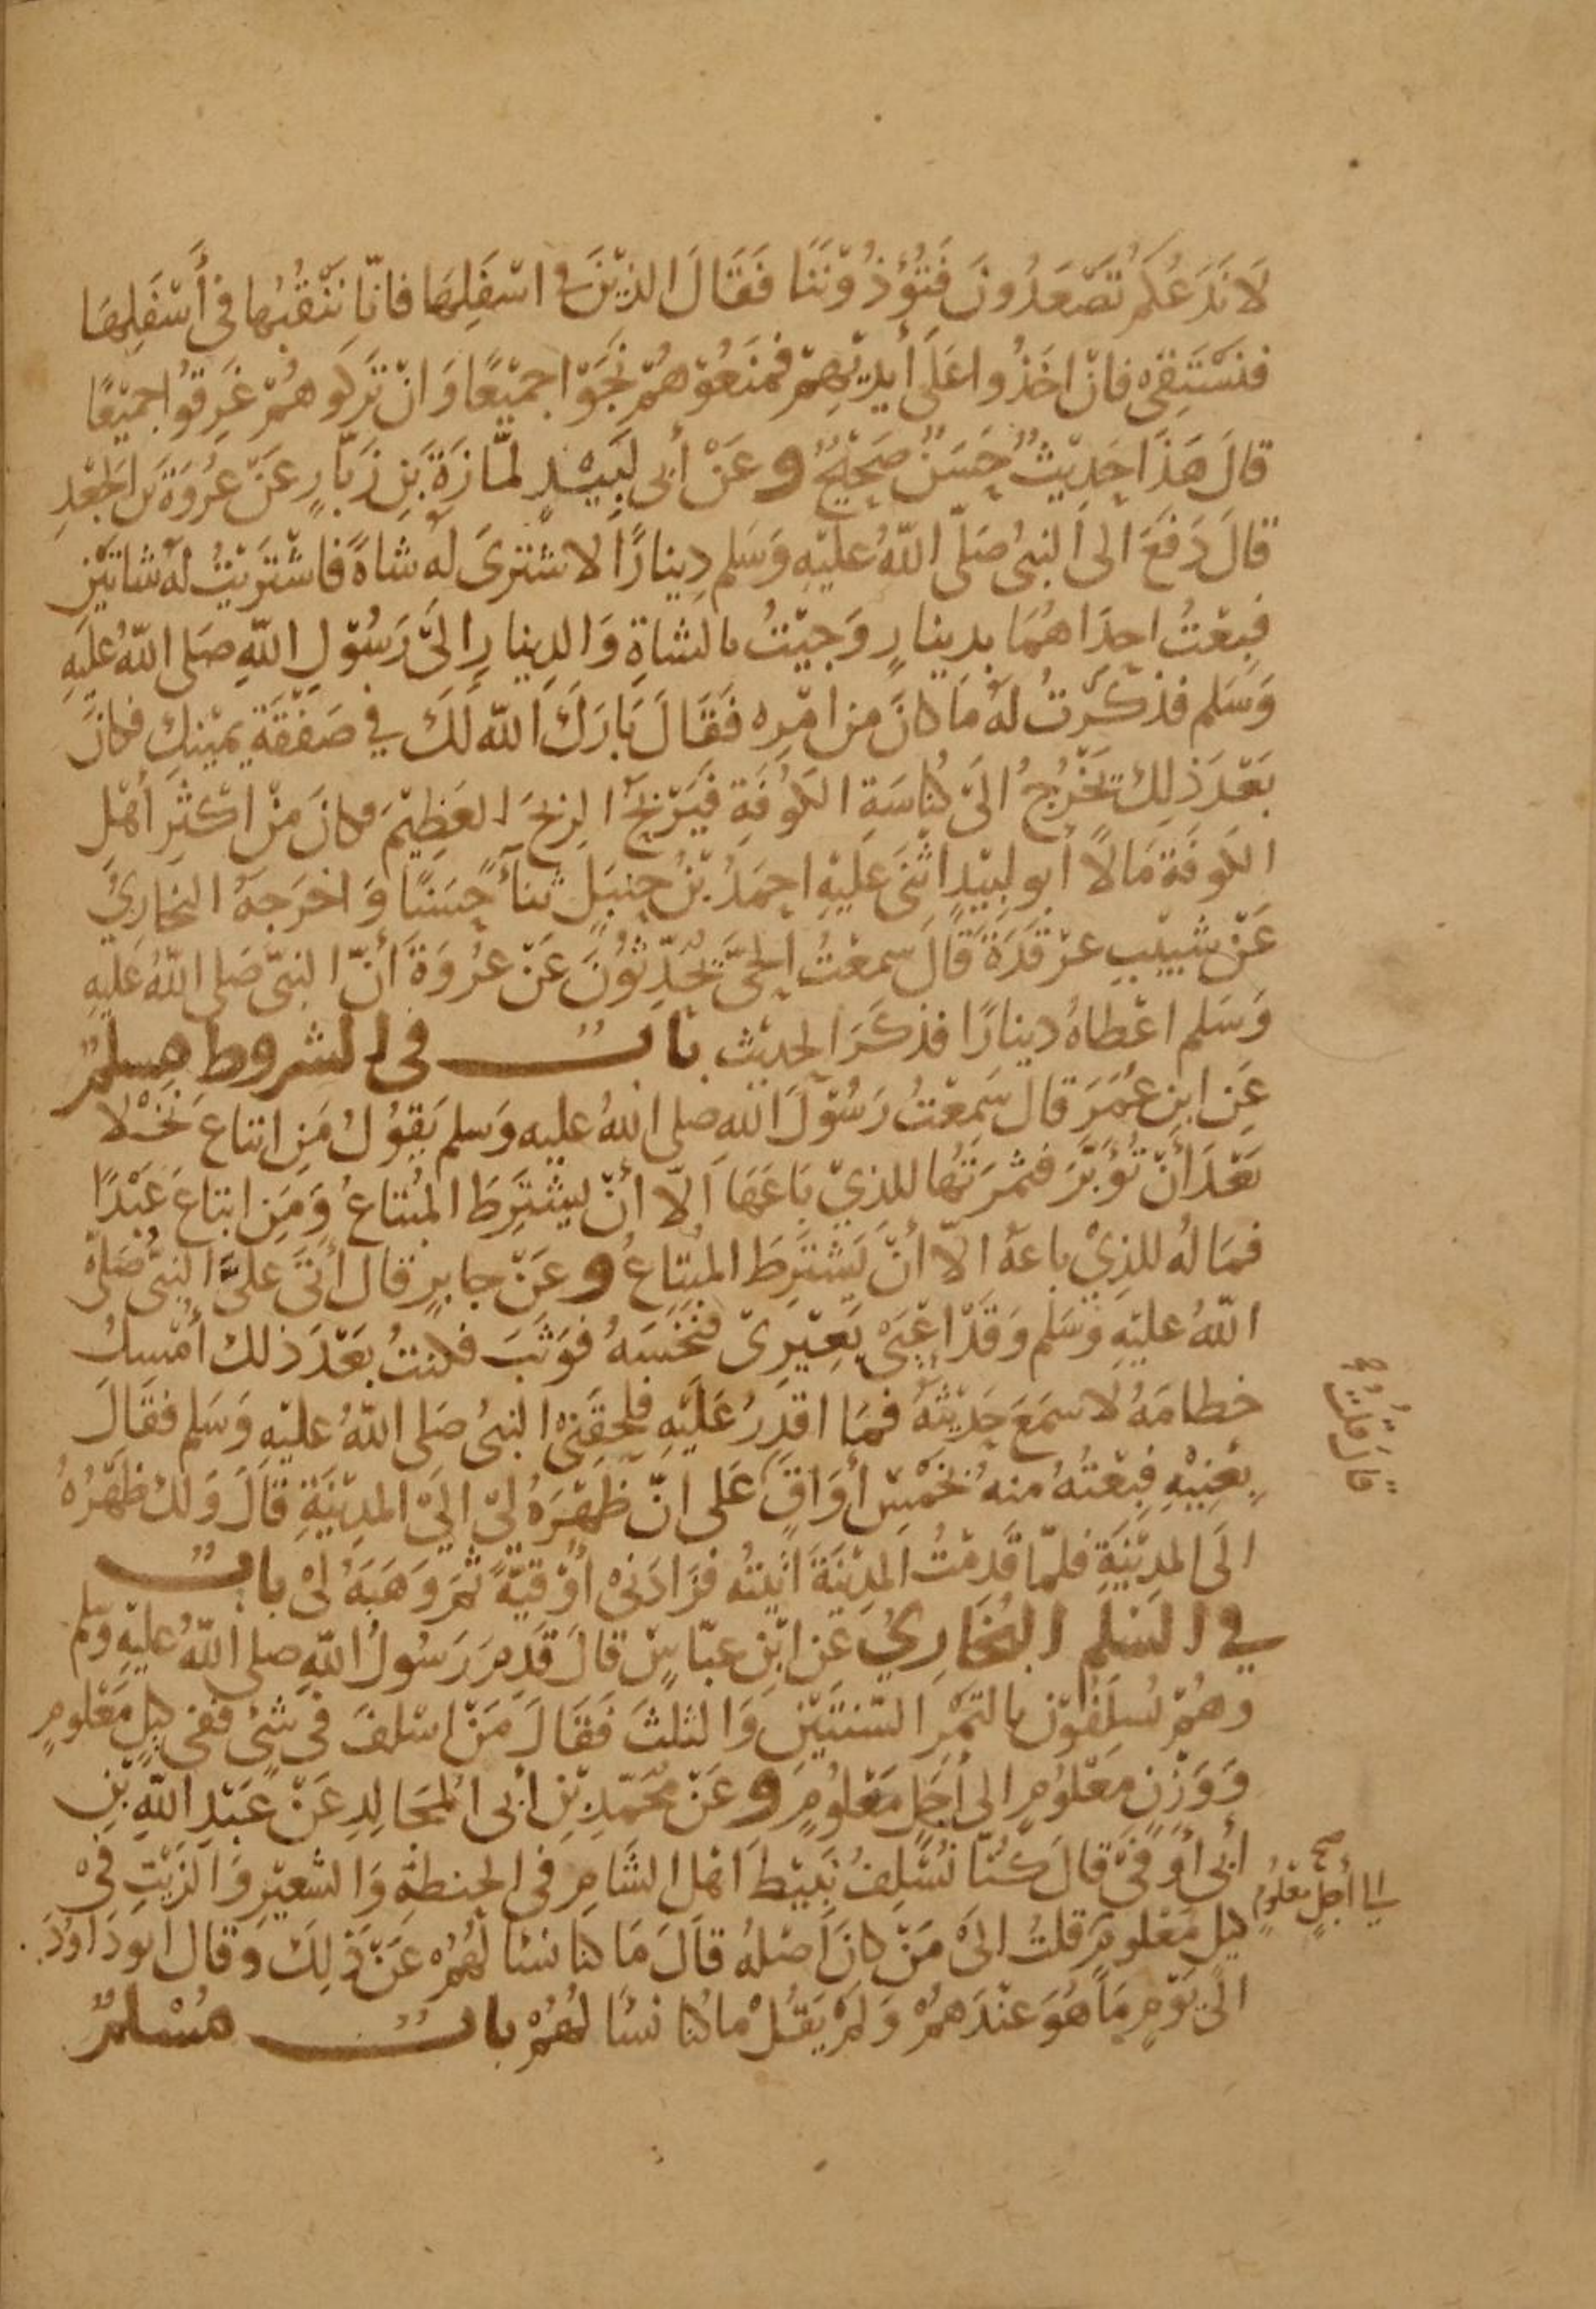 لَا نَدَعُكُمْ تَصْعَدُونَ فَتُؤْذُوْنَنَا فَقَالَ الذِيْنَ فى اسْفَلِهَا فانّا نَنْقُبُها فى أَسْفَلِهَا
فنَسْتَقِى فانْ اخَذُوا عَلَى أيدِيْهِمْ فمَنَعُوْهُمْ نَجَوْا جمِيْعًا وَانْ تَرَكوهُمْ غَرِقُوا جمِيْعًا
قالَ هَذَا حَدِيْثٌ حَسَنٌ صَحِيْحٌ وعَنْ أبى لَبِيْدٍ لمَّازَةَ بَنِ زَبَّارٍ عَنْ عُرْوَةَ بن الجَعْدِ
قالَ دَفَعَ الى النبىُ صَلّى اللهُ عليْهِ وَسَلم دِينارًا لاشترىَ لهُ شاةً فاشْترَيْتُ لهُ شاتَيْنِ
فبِعْتُ احدَاهُمَا بدينارٍ وَجِيْتُ بالشاةِ وَالدِينارِ الىَ رَسُوْلِ اللهِ صَلى اللهُ عليَهِ
وَسَلم فذكَرْتُ لهُ مَا كانَ من امْرِه فَقَالَ بَارَكَ اللهُ لَكَ في صَفْقَةِ يمِيْنِك فكانَ
بَعْدَ ذلِكَ يَخْرُجُ الىَ كُناسَةِ الكُوفَةِ فيَرْبَحُ الرِبحَ العَظِيْمَ وكانَ مِنْ اكْثَرِ أهْلِ
الكوفَة مَالًا أبو لبِيْدٍ اثْنَى عَلَيْهِ احمَدُ بْنُ حنبَلٍ ثنأ حَسَنًا وَاخرَجَهُ البخارِيُ
عَنْ شبِيْبِ غرْقَدَةَ قَالَ سمِعْتُ الحَىَّ يُحَدِّثوُنَ عَنْ عُرْوَةَ أَنّ النبىّ صَلى اللهُ عَليْهِ
وَسَلم اعْطاهُ دينارًا فذكَرَ الحديْث بابٌ فى الشروط مسلمٌ
عَن ابنِ عُمَرَ قالَ سَمعْتُ رَسُوْلَ اللهِ صلى اللهُ عليه وَسلم يَقوُلُ مَنِ ابتاعَ نَخْلا
بَعْدَ أَنْ تُؤبَّرَ فثمرَتُها للذيْ بَاعَهَا الّا أنْ يشْتَرِطَ المُبْتاعُ وَمَنِ ابتاعَ عَبْدًا
فمَالهُ للذِيْ باعَهُ الّا أنْ يَشْترِطَ المبْتاعُ وعَنْ جابرٍ قال أتَى علىَّ النبىُّ صَلّى
اللهُ عليْهِ وَسَلم وَقَدْ اعْيَى بَعِيْرِىْ فنَخَسَهُ فوَثَبَ فكنتُ بَعْدَ ذلك أمْسِكُ
خطامَهُ لاسمَعَ حَدِيْثَهُ فمَا اقدِرُ عَلَيْهِ فلحقَنِىْ النبىُ صَلى اللهُ عليْهِ وَسَلم فقَالَ
بِعْنِيْهِ فبِعْتُهُ منهُ بخَمْسِ أوَاقٍ عَلى انّ ظَهْرَهُ لِىْ الىَ المدِيْنَةِ قالَ وَلكَ ظَهْرُهُ
الىَ المدِيْنَةِ فلمّا قَدِمْتُ المدِيْنَةَ اتَيْتُه فزَادَنىْ أوْقيَّةً ثمَ وَهَبَهُ لىْ بابٌ
في السَلم البُخَارِيُ عَن ابْنِ عبّاسٍ قالَ قدِمَ رَسُولُ اللهِ صلى اللهُ عليْهِ وسّلم
وهُمْ يُسلِفُوْن بالتمْر السّنتَيْن وَالثلثَ فَقَالَ مَنْ اسْلفَ فى شىْءٍ ففى كيلٍ مَعْلومٍ
وَوَزْنٍ مَعْلوُمٍ الى أجَلٍ مَعْلُومٍ وعَنْ محُمّدِ بْنِ أبى المُجَالِدِ عَنْ عَبْدِ اللهِ بْنِ
أبى أوْفىْ قالَ كنُّا نُسْلِفُ نَبِيْطَ اهْل الشَامِ فى الحنطةِ وَالشعِيْرِ وَالزَيْتِ فىْ
كيلٍ مَعْلومٍ قلتُ الىَ مَنْ كانَ اصْلهُ قالَ مَا كنا نسْألهُمْ عَنْ ذلِكَ وَقال ابو دَاوُدَ
الى قوْمٍ مَا هُوَ عنْدَهُمْ وَلمْ يَقُلْ ما كُنا نسْألهُمْ بابٌ مُسْلمٌ
الى أجلٍ معْلومٍ
صح